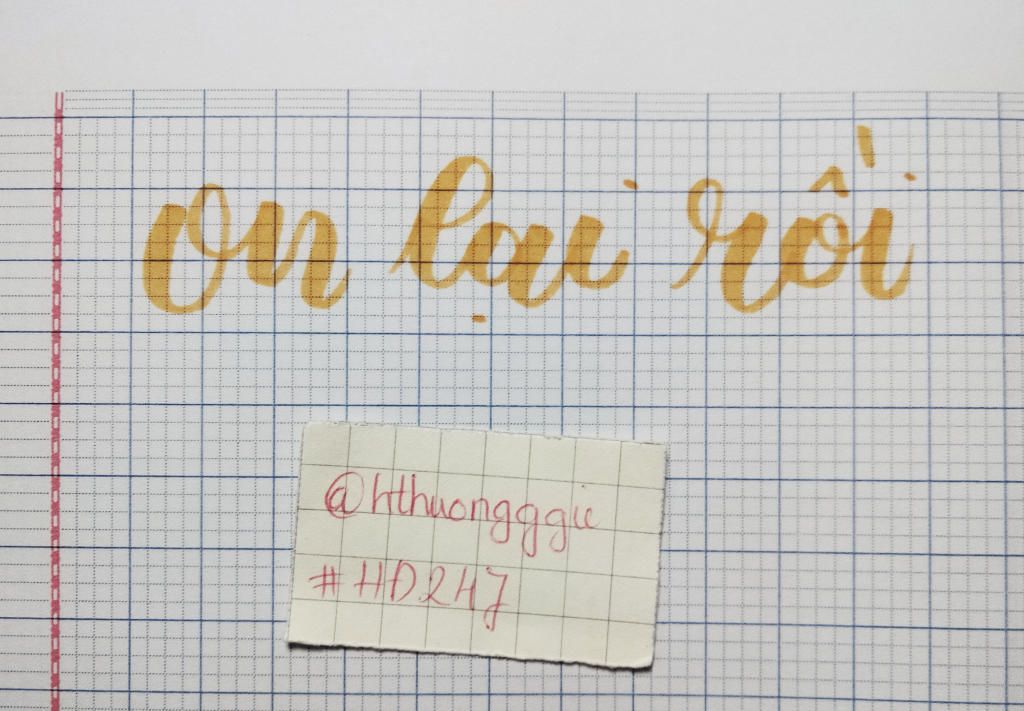 on lại rồi
@hthuongggie
#HĐ247